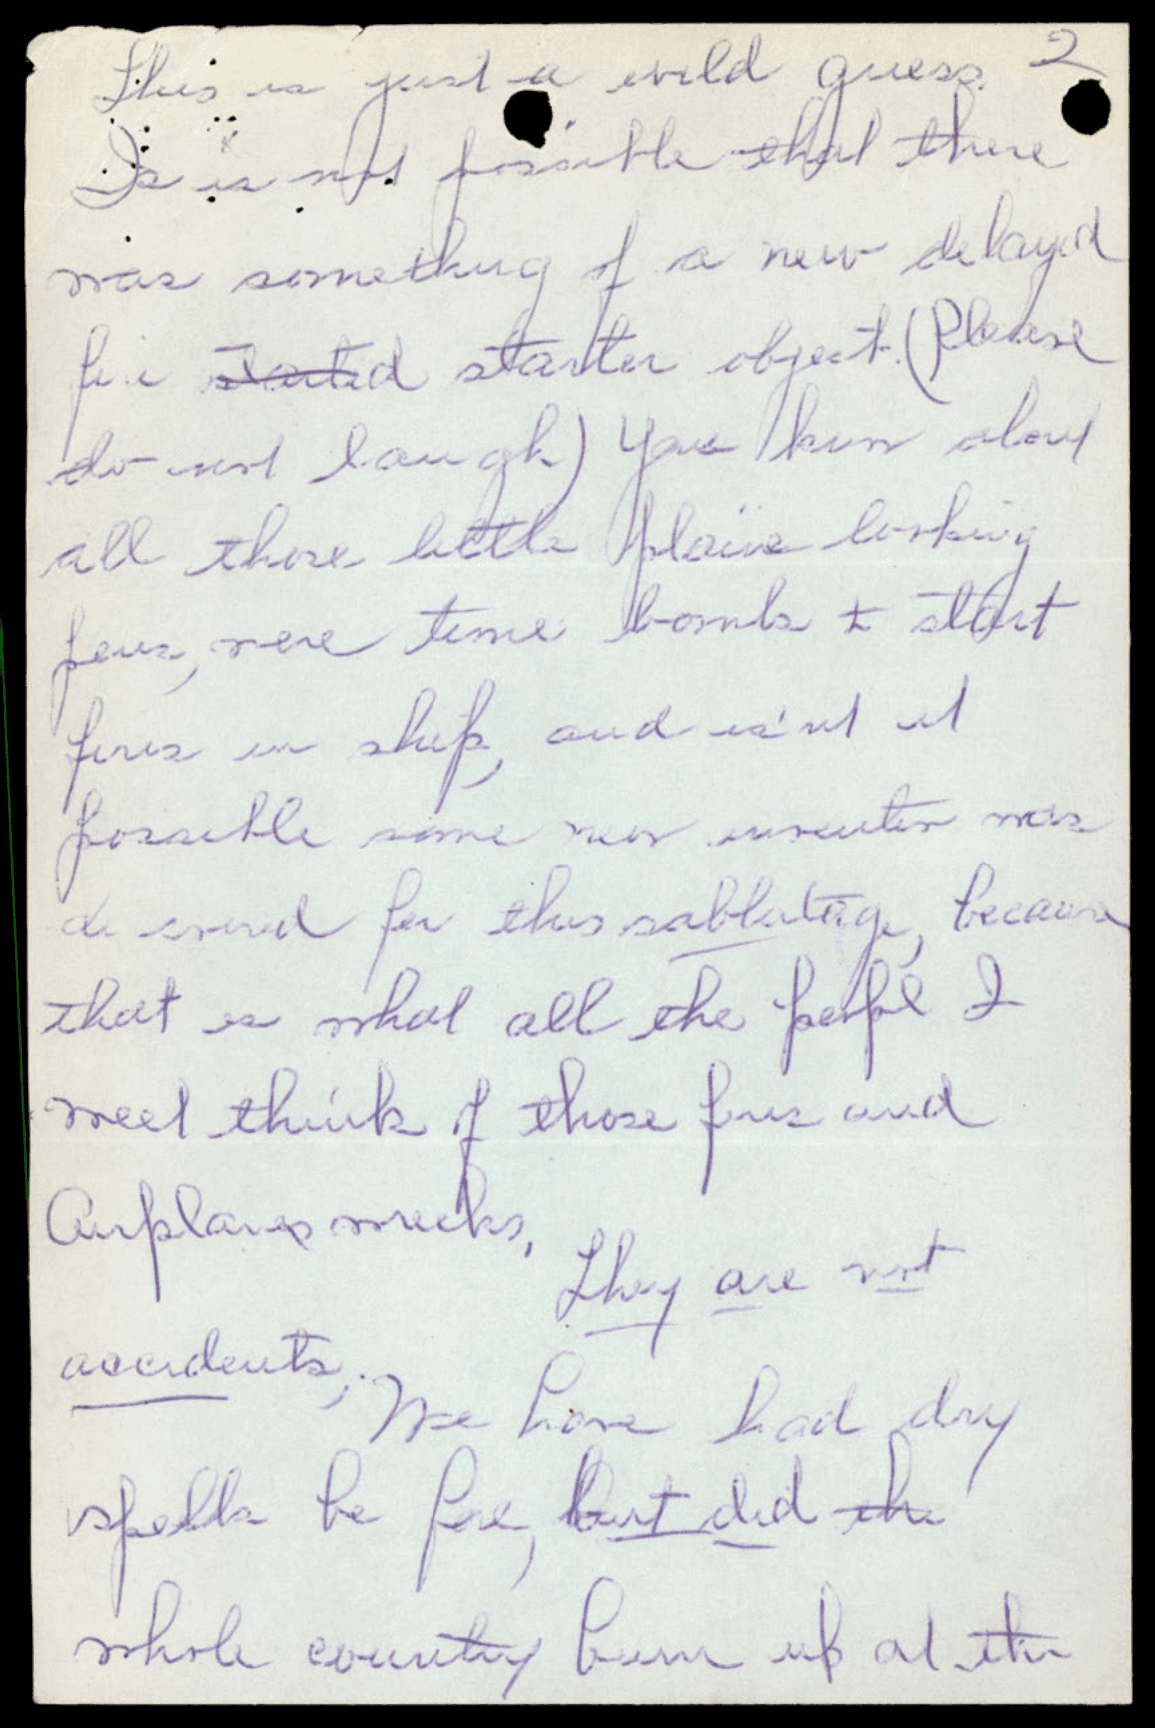 2
This is just a wild guess.
Is is not possible that there
was something of a new delayed
fire started starter object. (Please
do not laugh) You know about
all those little plaine looking
pens, were time bombs to start
fires in ship, and is'nt it
possible some new invention was
for this sabbatage, because
that is what all the peopl I
meet think of those fires and
Airplanes wrecks.
They are not
accidents,.
We have had dry
spells be fore, but did the
whole country burn up at the